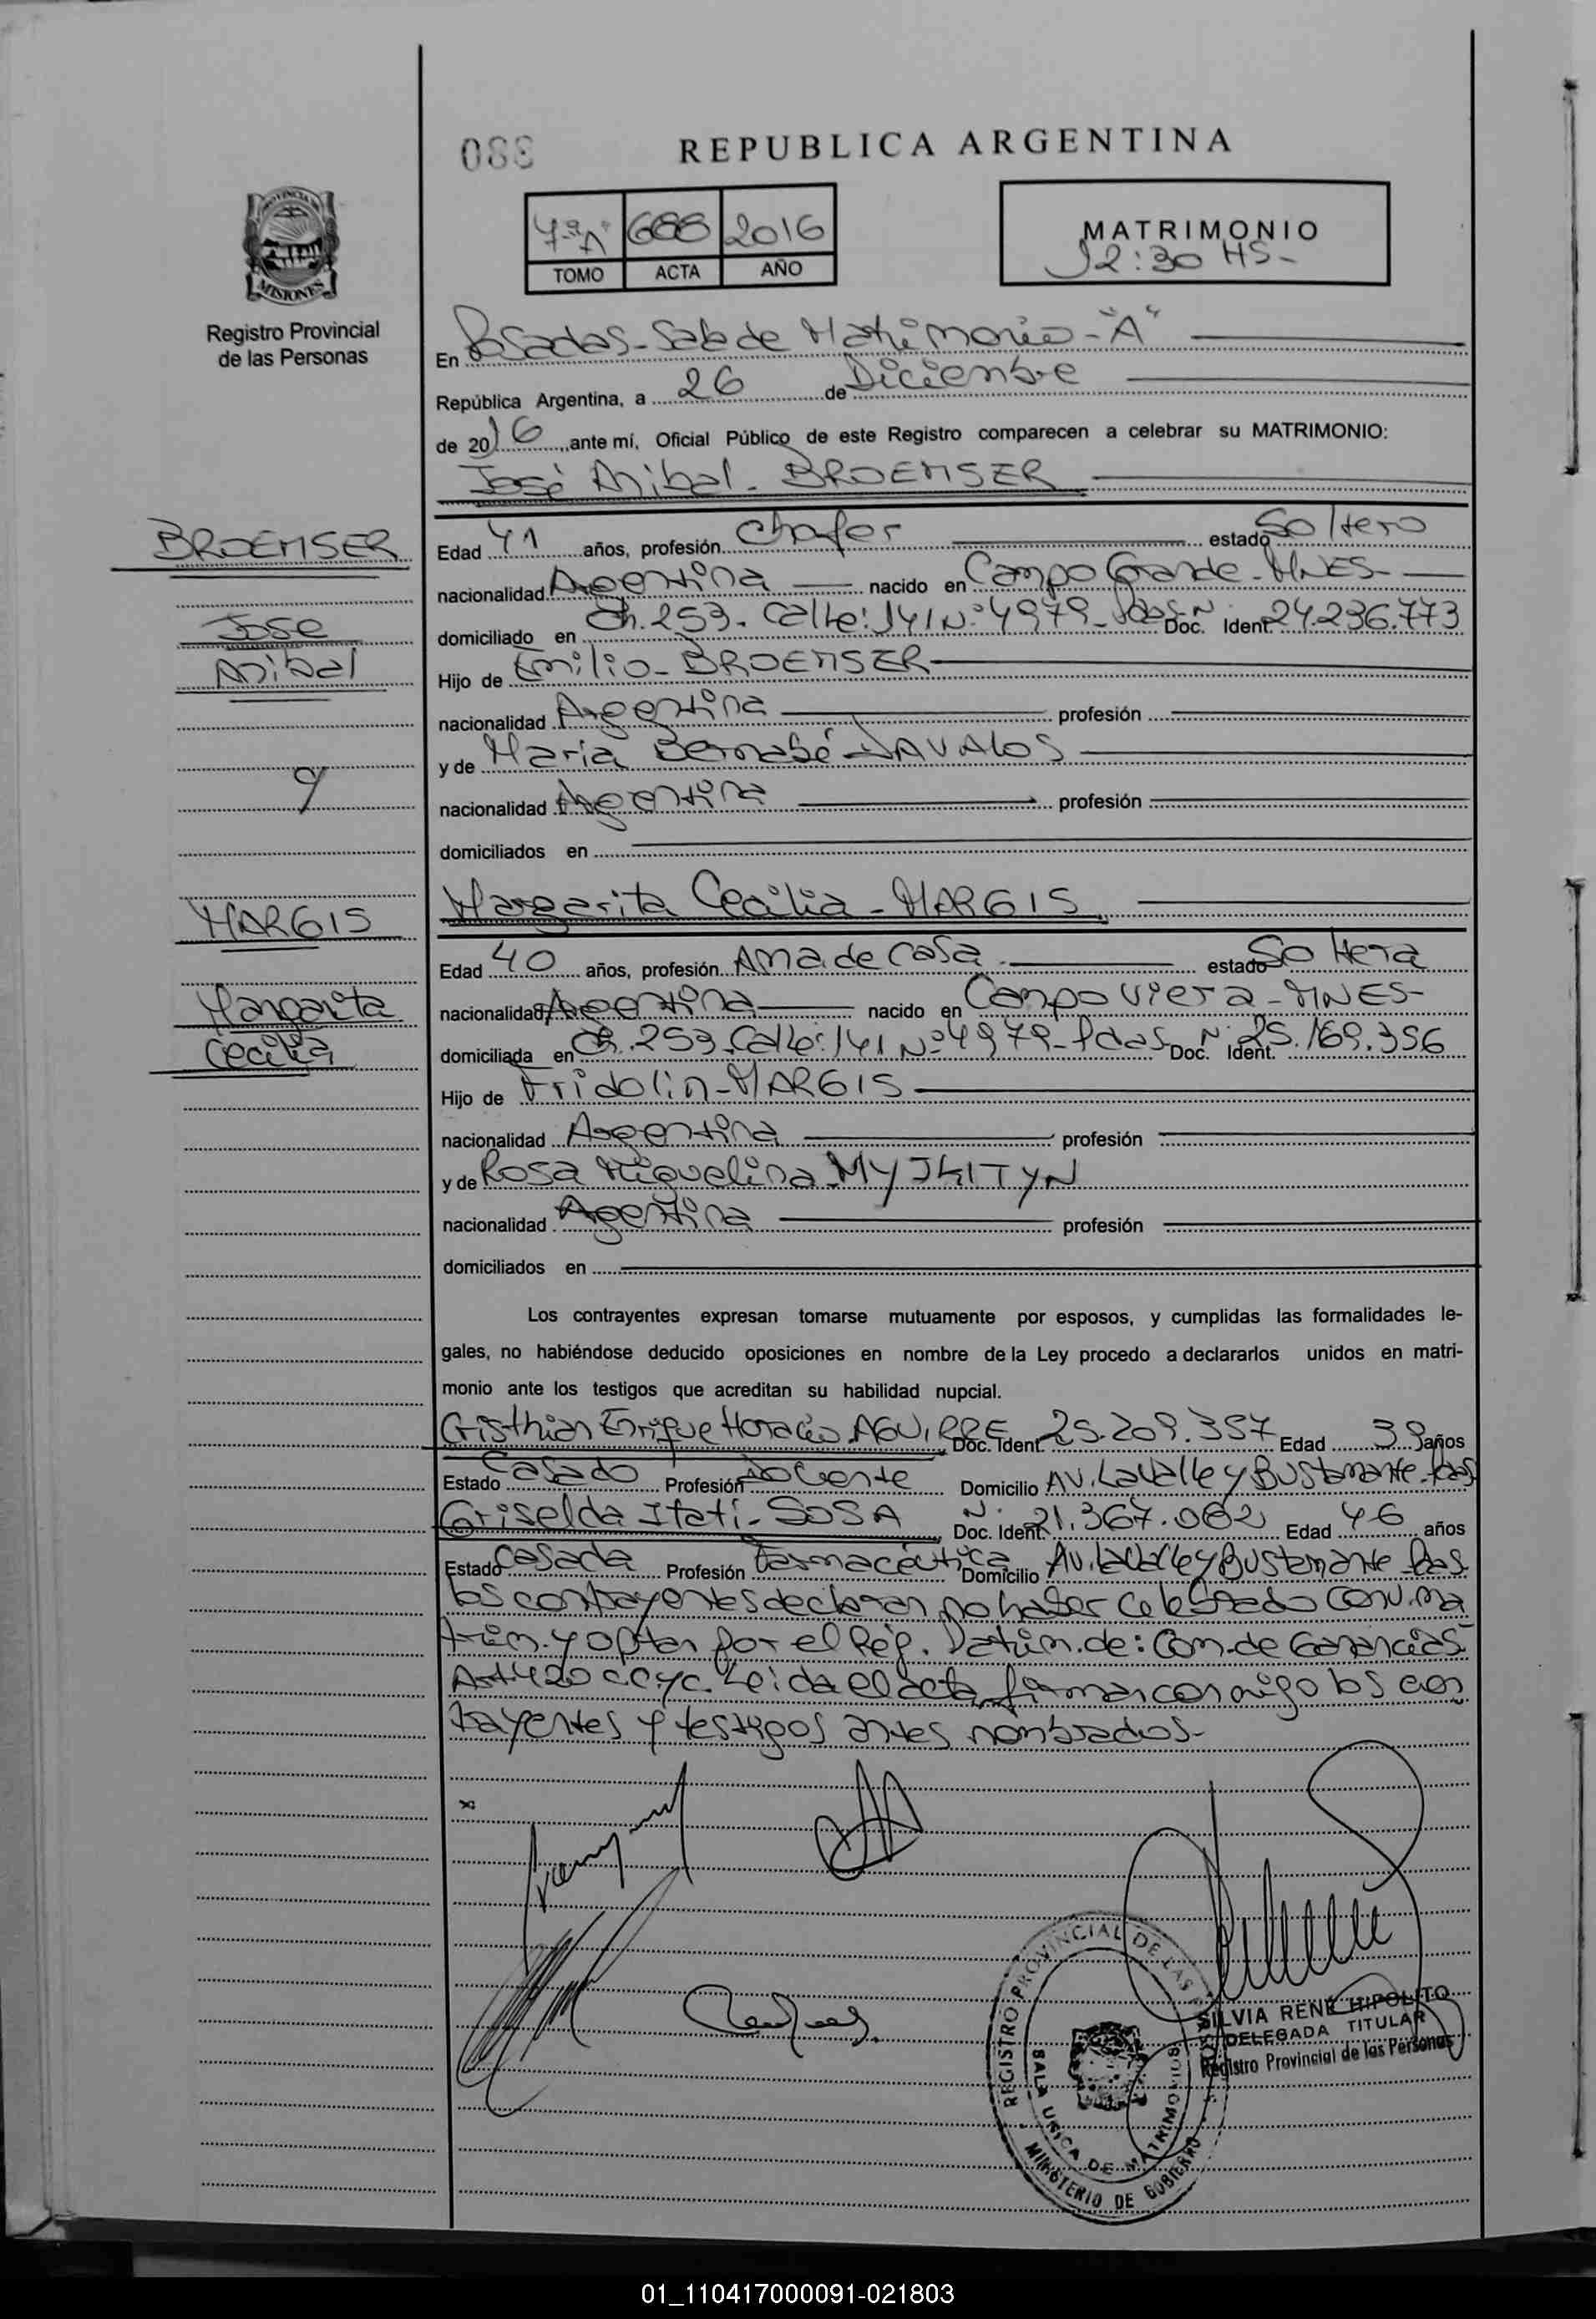 088
REPUBLICA ARGENTINA
7ºA" 688 2016
TOMO ACTA AÑO
MATRIMONIO
12:30 HS-
PROVINCIA DE
MISIONES
Registro Provincial
de las Personas
En Posadas-Sala de Matrimonio-"A"
República Argentina, a 26 de Diciembre
de 2016, ante mí, Oficial Público de este Registro comparecen a celebrar su MATRIMONIO:
José Anibal- BROEMSER
BROEMSER
Jose
Anibal
y
MARGIS
Margarita
Cecilia
Edad 41 años, profesión Chofer estado Soltero
nacionalidad Argentina nacido en Campo Grande-MNES-
domiciliado en Ch.253-Calle:141Nº4979-Pdas Nº Doc. Ident. 24.236.773
Hijo de Emilio-BROEMSER
nacionalidad Argentina profesión
y de Maria Bernabé-DAVALOS
nacionalidad Argentina profesión
domiciliados en
Margarita Cecilia-MARGIS
Edad 40 años, profesión Ama de casa estado Soltera
nacionalidad Argentina nacido en Campo Viera-MNES-
domiciliada en Ch.253-Calle:141Nº4979-Pdas Nº Doc. Ident. 25.169.356
Hijo de Fridolin-MARGIS
nacionalidad Argentina profesión
y de Rosa Miquelina MYJKITYN
nacionalidad Argentina profesión
domiciliados en
Los contrayentes expresan tomarse mutuamente por esposos, y cumplidas las formalidades le-
gales, no habiéndose deducido oposiciones en nombre de la Ley procedo a declararlos unidos en matri-
monio ante los testigos que acreditan su habilidad nupcial.
Cristhian Enrique Horacio AGUIRRE Doc. Ident. 25.209.357 Edad 39 años
Estado Casado Profesión Docente Domicilio AV. Lavalle y Bustamante-Pdas
Griselda Itati-SOSA Nº Doc. Ident. 21.367.062 Edad 46 años
Estado Casada Profesión Farmacéutica Domicilio Av. Lavalle y Bustamante Pdas
los contrayentes declaran no haber celebrado Conv. Ma
trim. y optan por el Rég. Patrim. de: Com. de Ganancias
Art 420 CCyC. Leida el acta, firman conmigo los con
trayentes y testigos antes nombrados-
REGISTRO PROVINCIAL DE LAS
SALA UNICA DE MATRIMONIOS
MINISTERIO DE GOBIERNO
SILVIA RENÉ HIPOLITO
DELEGADA TITULAR
Registro Provincial de las Personas
01_110417000091-021803